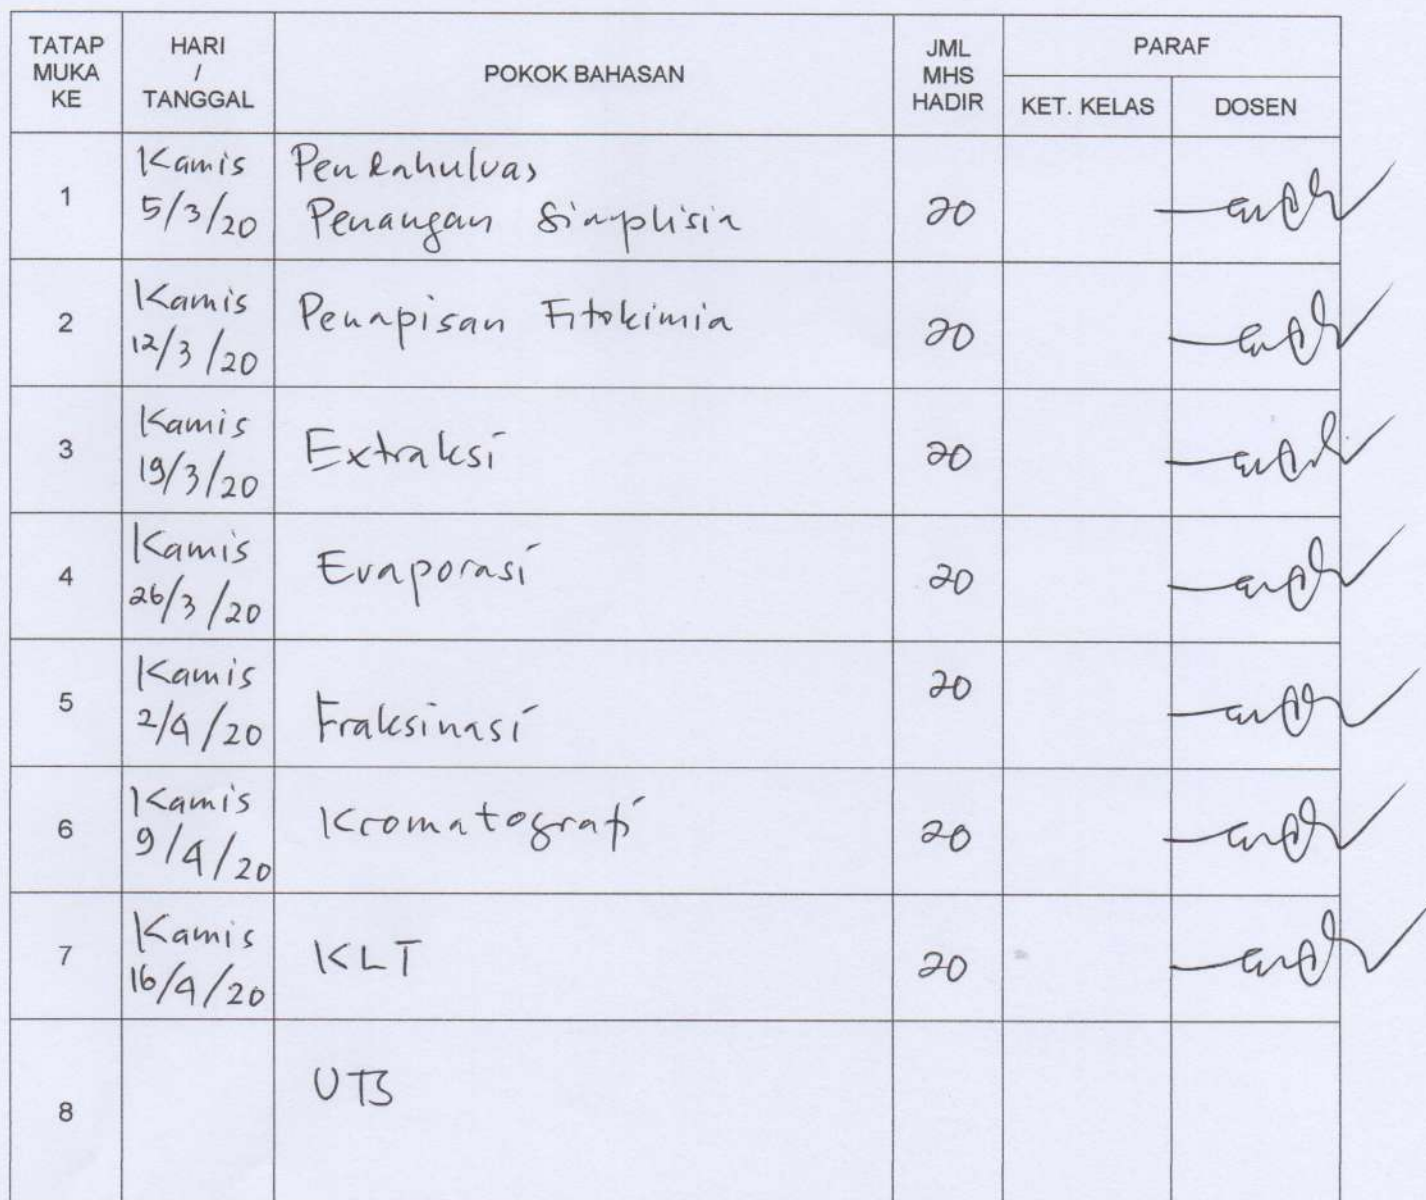 TATAP MUKA KE
HARI / TANGGAL
POKOK BAHASAN
JML MHS HADIR
PARAF
KET. KELAS
DOSEN
1 Kamis 5/3/20 Pendahuluan 20
Penangan Simplisia
2 Kamis 12/3/20 Penapisan Fitokimia 20
3 Kamis 19/3/20 Extraksi 20
4 Kamis 26/3/20 Evaporasi 20
5 Kamis 2/4/20 Fraksinasi 20
6 Kamis 9/4/20 Kromatografi 20
7 Kamis 16/4/20 KLT 20
8 UTS